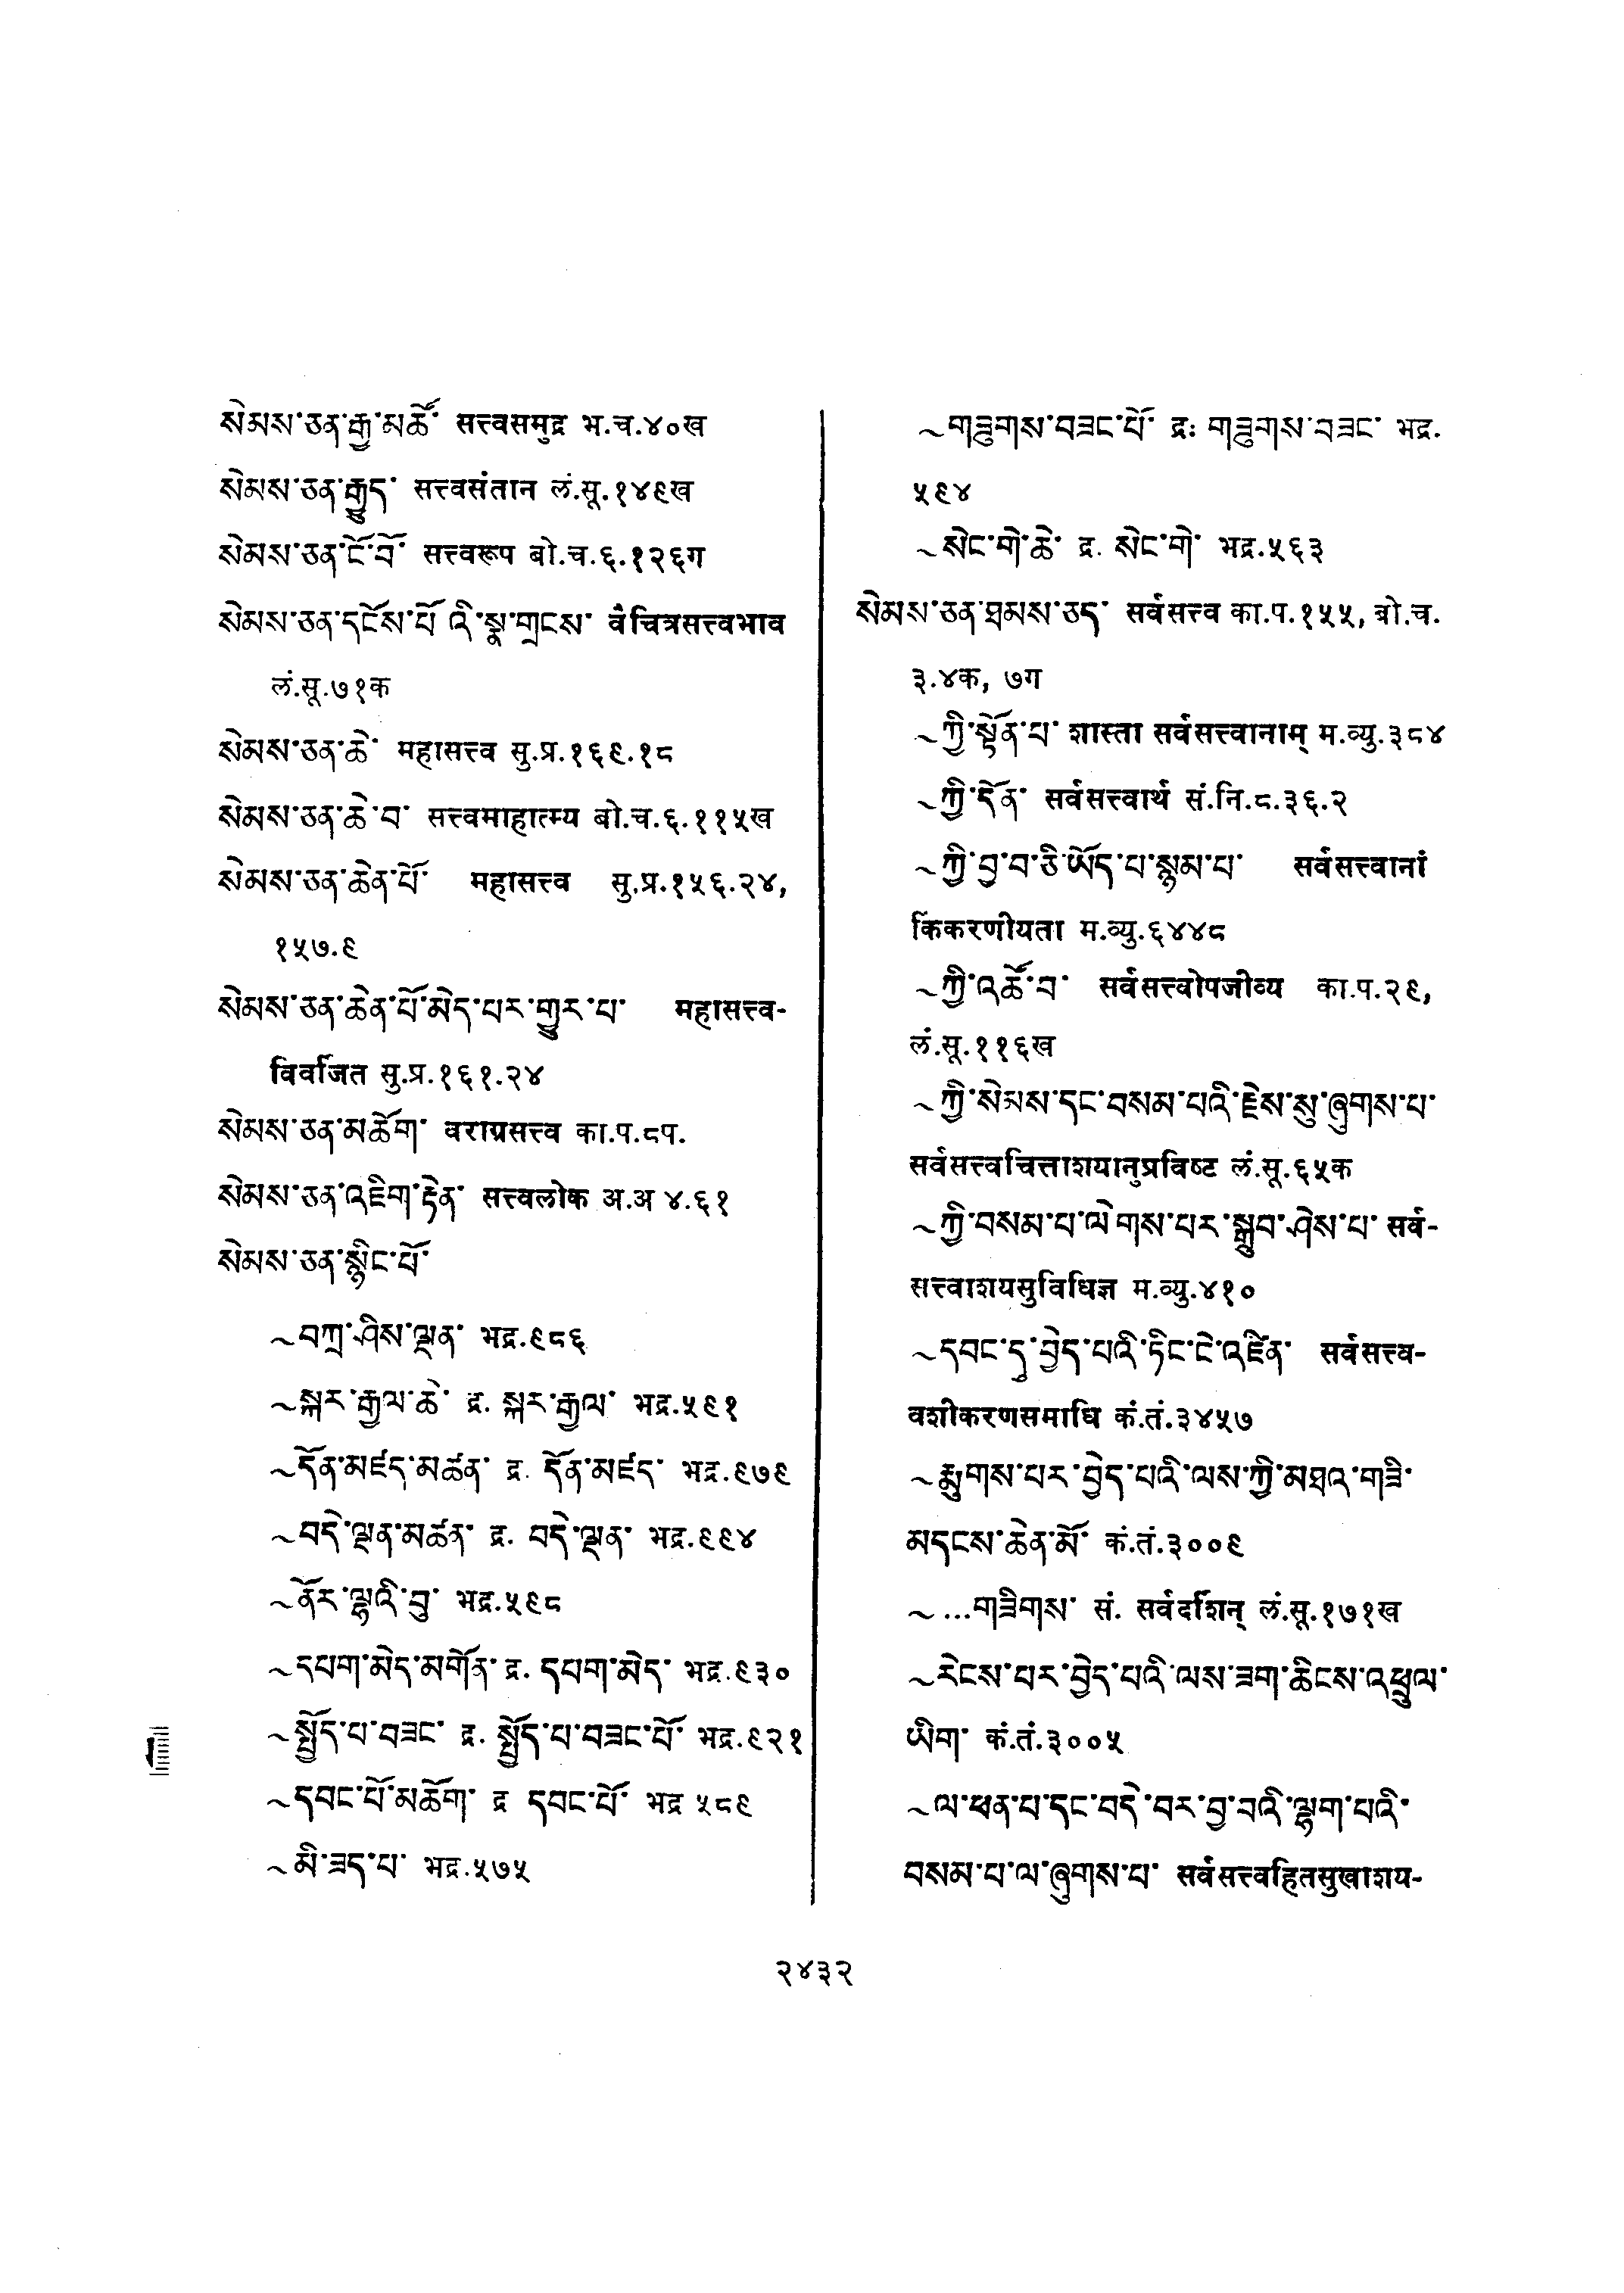 སེམས་ཅན་རྒྱ་མཚོ་ सत्त्वसमुद्र भ.च.४०ख
སེམས་ཅན་རྒྱུད་ सत्त्वसंतान लं.सू.१४९ख
སེམས་ཅན་ངོ་བོ་ सत्त्वरूप बो.च.६.१२६ग
སེམས་ཅན་དངོས་པོ་འི་སྣ་གྲངས་ वैचित्रसत्त्वभाव
लं.सू.७१क
སེམས་ཅན་ཆེ་ महासत्त्व सु.प्र.१६९.१८
སེམས་ཅན་ཆེ་བ་ सत्त्वमाहात्म्य बो.च.६.११५ख
སེམས་ཅན་ཆེན་པོ་ महासत्त्व सु.प्र.१५६.२४,
१५७.९
སེམས་ཅན་ཆེན་པོ་མེད་པར་གྱུར་པ་ महासत्त्व-
विवर्जित सु.प्र.१६१.२४
སེམས་ཅན་མཆོག་ वराग्रसत्त्व का.प.८प.
སེམས་ཅན་འཇིག་རྟེན་ सत्त्वलोक अ.अ ४.६१
སེམས་ཅན་སྙིང་པོ་
~བཀྲ་ཤིས་ལྡན་ भद्र.९८६
~སྐར་རྒྱལ་ཆེ་ द्र. སྐར་རྒྱལ་ भद्र.५९१
~དོན་མཛད་མཚན་ द्र. དོན་མཛད་ भद्र.९७९
~བདེ་ལྡན་མཚན་ द्र. བདེ་ལྡན་ भद्र.९९४
~ནོར་ལྷའི་བུ་ भद्र.५९८
~དཔག་མེད་མགོན་ द्र. དཔག་མེད་ भद्र.९३०
~སྤྱོད་པ་བཟང་ द्र. སྤྱོད་པ་བཟང་པོ་ भद्र.९२१
~དབང་པོ་མཆོག་ द्र དབང་པོ་ भद्र ५८९
~མི་ཟད་པ་ भद्र.५७५
~གཟུགས་བཟང་པོ་ द्र: གཟུགས་བཟང་ भद्र.
५९४
~སེང་གེ་ཆེ་ द्र. སེང་གེ་ भद्र.५६३
སེམས་ཅན་ཐམས་ཅད་ सर्वसत्त्व का.प.१५५, बो.च.
३.४क, ७ग
~ཀྱི་སྟོན་པ་ शास्ता सर्वसत्त्वानाम् म.व्यु.३८४
~ཀྱི་དོན་ सर्वसत्त्वार्थ सं.नि.८.३६.२
~ཀྱི་བྱ་བ་ཅི་ཡོད་པ་སྙམ་པ་ सर्वसत्त्वानां
किंकरणीयता म.व्यु.६४४८
~ཀྱི་འཚོ་བ་ सर्वसत्त्वोपजीव्य का.प.२९,
लं.सू.११६ख
~ཀྱི་སེམས་དང་བསམ་པའི་རྗེས་སུ་ཞུགས་པ་
सर्वसत्त्वचित्ताशयानुप्रविष्ट लं.सू.६५क
~ཀྱི་བསམ་པ་ལེགས་པར་སྒྲུབ་ཤེས་པ་ सर्व-
सत्त्वाशयसुविधिज्ञ म.व्यु.४१०
~དབང་དུ་བྱེད་པའི་ཏིང་ངེ་འཛིན་ सर्वसत्त्व-
वशीकरणसमाधि कं.तं.३४५७
~རྨུགས་པར་བྱེད་པའི་ལས་ཀྱི་མཐའ་གཟི་
མདངས་ཆེན་མོ་ कं.तं.३००९
~...གཟིགས་ सं. सर्वदर्शिन् लं.सू.१७१ख
~རེངས་པར་བྱེད་པའི་ལས་ཟག་ཆིངས་འཕྲུལ་
ཡིག་ कं.तं.३००५
~ལ་ཕན་པ་དང་བདེ་བར་བྱ་བའི་ལྷག་པའི་
བསམ་པ་ལ་ཞུགས་པ་ सर्वसत्त्वहितसुखाशय-
२४३२